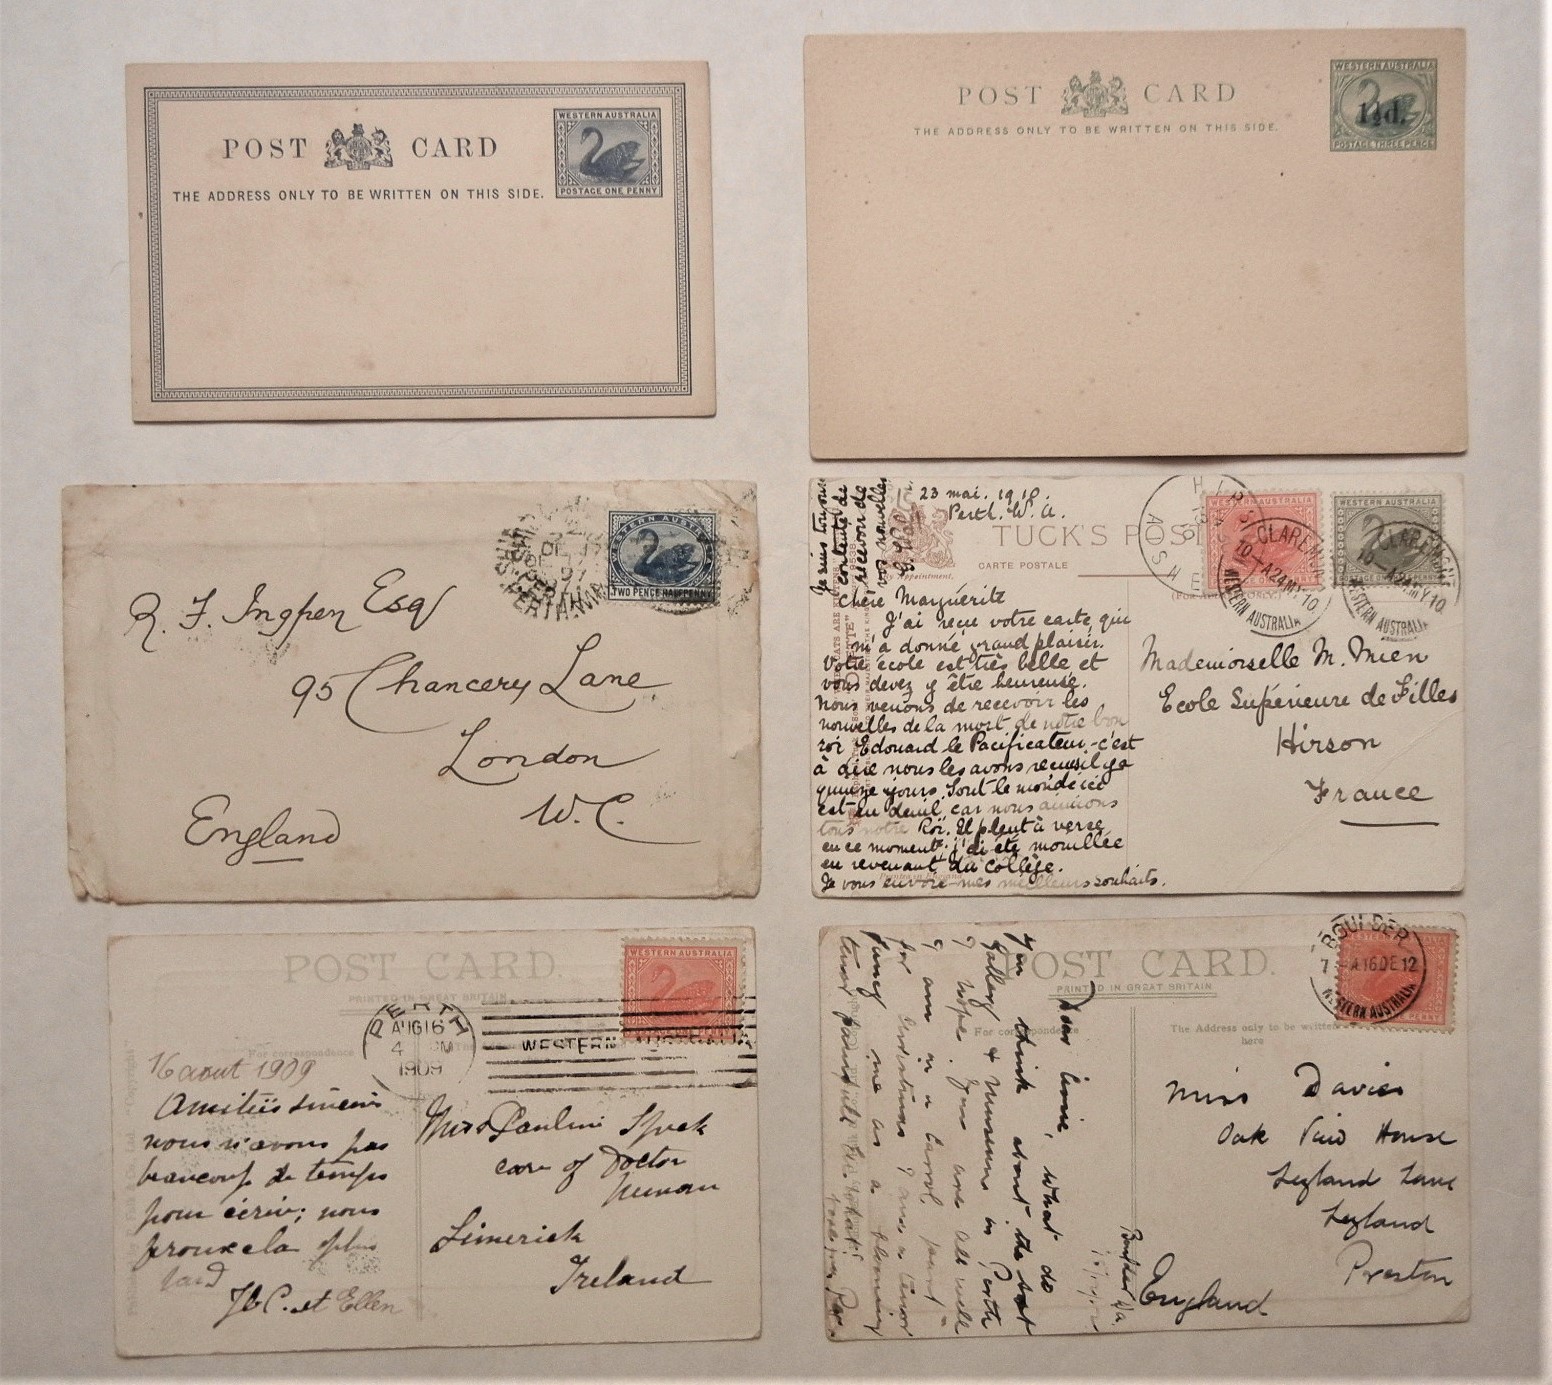 POST CARD
THE ADDRESS ONLY TO BE WRITTEN ON THIS SIDE.
WESTERN AUSTRALIA
POSTAGE ONE PENNY
POST CARD
THE ADDRESS ONLY TO BE WRITTEN ON THIS SIDE.
WESTERN AUSTRALIA
1½d.
POSTAGE THREE PENCE
WESTERN AUSTRALIA
TWO PENCE HALFPENNY
R. F. Ingpen Esq
95 Chancery Lane
London
W.C.
England
Je suis toujours
contente de
recevoir de
vos nouvelles
23 mai. 1910.
Perth. W. A.
TUCK'S POST
CARTE POSTALE
WESTERN AUSTRALIA
WESTERN AUSTRALIA
HIRSON
AISNE
CLAREMONT
10-A24MY10
WESTERN AUSTRALIA
CLAREMONT
WESTERN AUSTRALIA
Chère Marguérite
J'ai reçu votre carte, qui
m'a donné grand plaisir.
Votre école est très belle et
vous devez y être heureuse.
Nous venons de recevoir les
nouvelles de la mort de notre bon
roi Edouard le Pacificateur, - c'est
à dire nous les avons recueil ya
quinze jours. Tout le monde ici
est en deuil, car nous aimions
tous notre Roi. Il pleut à verse
en ce moment; j'ai été mouillée
en revenant du Collège.
Je vous envoie mes meilleurs souhaits.
Mademoiselle M. Mien
Ecole Supérieure de Filles
Hirson
France
POST CARD.
PRINTED IN GREAT BRITAIN
For correspondence
WESTERN AUSTRALIA
PERTH
AUG16
4 PM
1909
WESTERN AUSTRALIA
16 aout 1909
Amitiés sincères
nous n'avons pas
beaucoup de temps
pour écrire; nous
ferons cela plus
tard
et Ellen
Miss Pauline
care of Doctor
Limerick
Ireland
POST CARD.
PRINTED IN GREAT BRITAIN
For correspondence
The Address only to be written
here
BOULDER
A16DE12
WESTERN AUSTRALIA
what do
you think about the
Gallery & Museum in Perth
I hope you are all well
I am in a Carrol
for Christmas I am a tenor
fancy me as a blooming
tenor
Miss Davies
Oak View House
Leyland Lane
Leyland
Preston
England